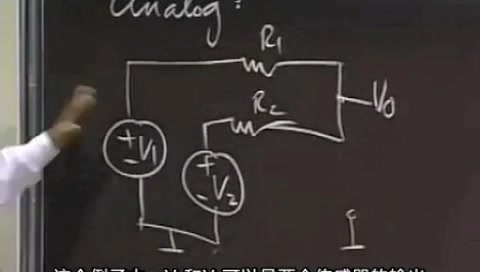 Analog:
R1
R2
V0
+
V1
-
+
V2
-
这个例子中，V1和V2可以是两个传感器的输出